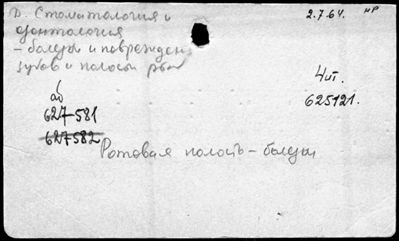 Д. Стоматология и 2.7.64. нр
одонтология
- болезни и поврежден.
зубов и полости рта
4 шт.
аб 625121.
627-581
627582
Ротовая полость - болезни